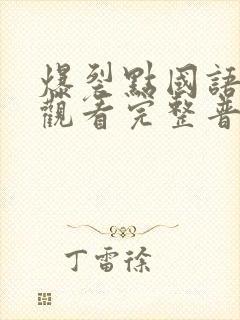 爆裂點國語
觀看完整普
丁雷徐